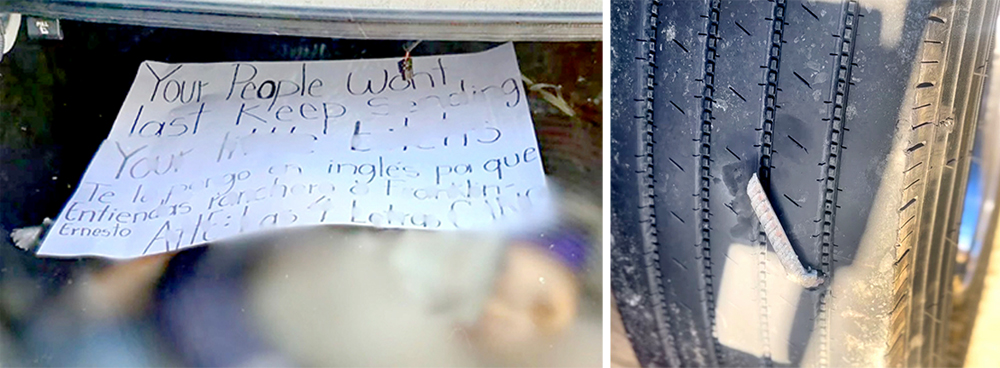 Your People Wont
last Keep Sending
Your
Te lo pongo en inglés pa que
Entiendas ranchero ó Franklin
Ernesto Att: Las 4 Letras